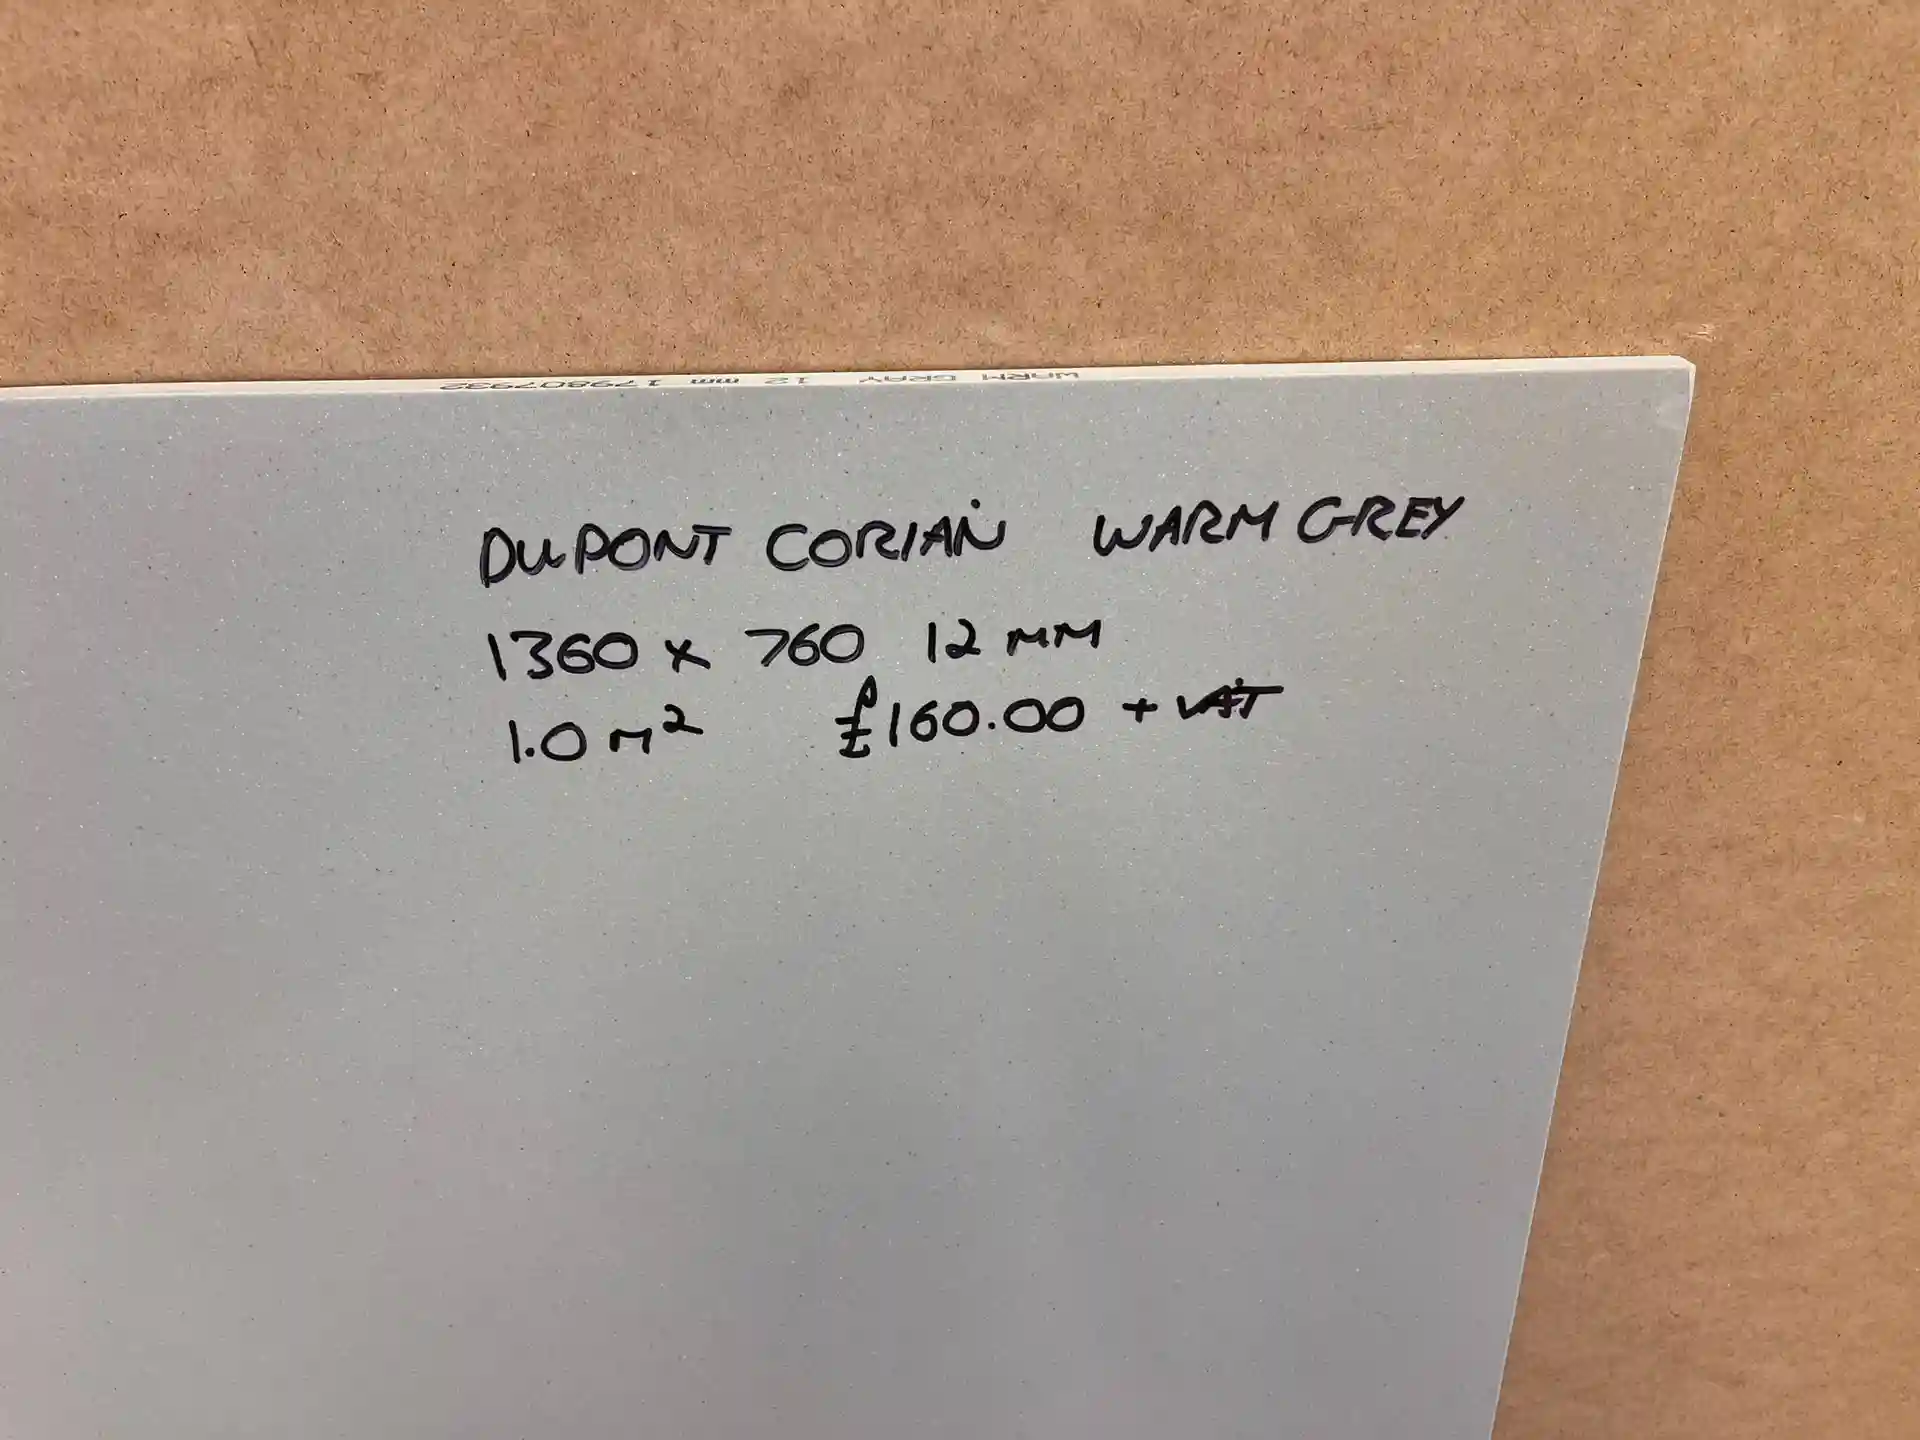 WARM GRAY 12 mm 179807932
DUPONT CORIAN WARM GREY
1360 x 760 12 MM
1.0 M² £160.00 + VAT